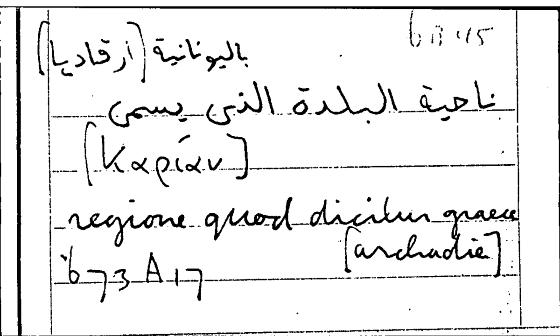 681145
باليونانية [أرقاديا]
ناحية البلدة الذى يسمى
[Καρίαν]
regione quod dicitur graece
[archadie]
673 A 17